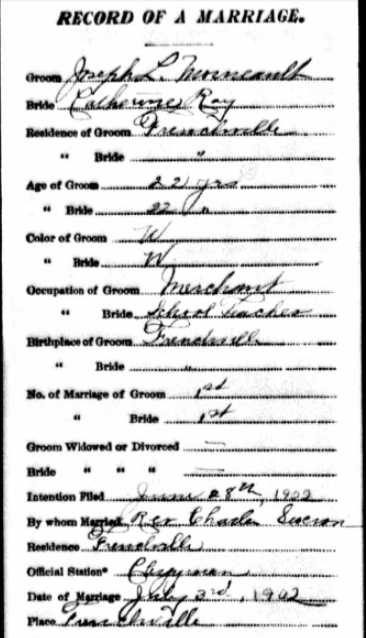 RECORD OF A MARRIAGE.
Groom Joseph L. Morneault
Bride Catherine Roy
Residence of Groom Frenchville
" Bride "
Age of Groom 22 yrs
" Bride 22 "
Color of Groom W
" Bride W
Occupation of Groom Merchant
" Bride School Teacher
Birthplace of Groom Frenchville
" Bride "
No. of Marriage of Groom 1st
" Bride 1st
Groom Widowed or Divorced —
Bride " " " —
Intention Filed June 28th, 1902
By whom Married Rev Charles
Residence Frenchville
Official Station* Clergyman
Date of Marriage July 3rd, 1902
Place Frenchville